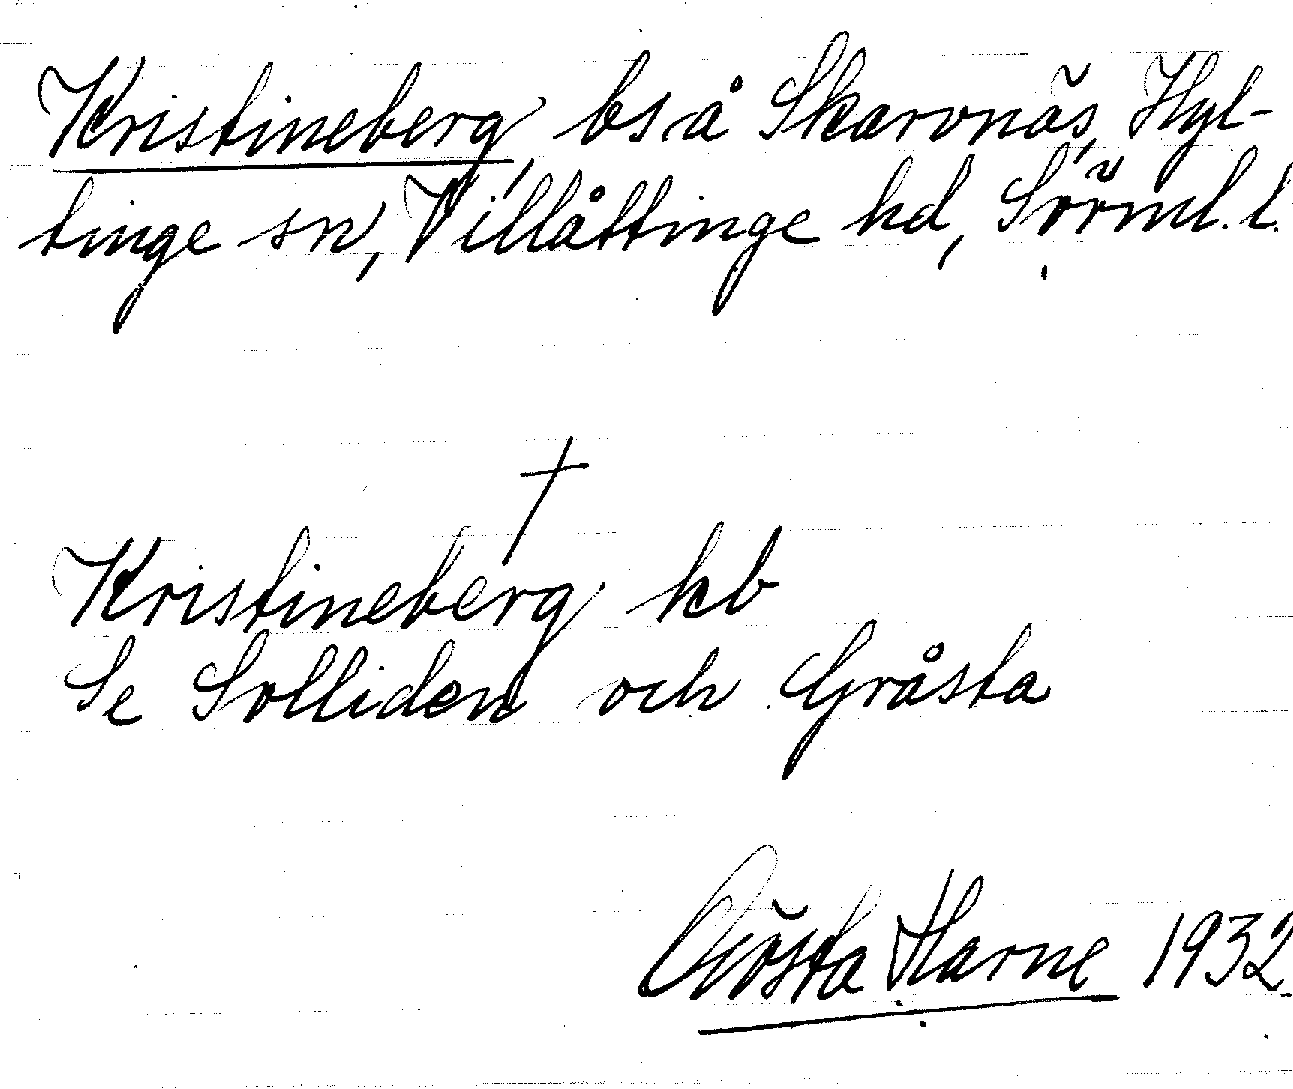 Kristineberg, bs å Skarvnäs, Hyl-
tinge sn, Villåttinge hd, Sörml. l.
†
Kristineberg kb
Se Solliden och Gråsta
Gösta Harne 1932